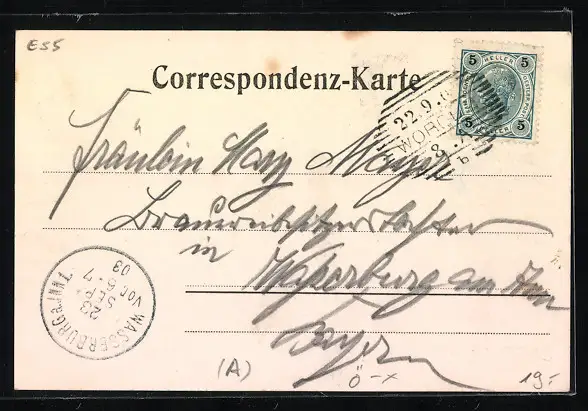 E55
Correspondenz-Karte
5 HELLER 5
5 5
22.9.0
WÖRGL
8
b
Fräulein Mary Mayr
Brauereibesitzerstochter
in
Wasserburg am Inn
Bayern
WASSERBURG a. INN I.
23
SEP.
VOR 6-7
03
(A)
Ö-x
19.-